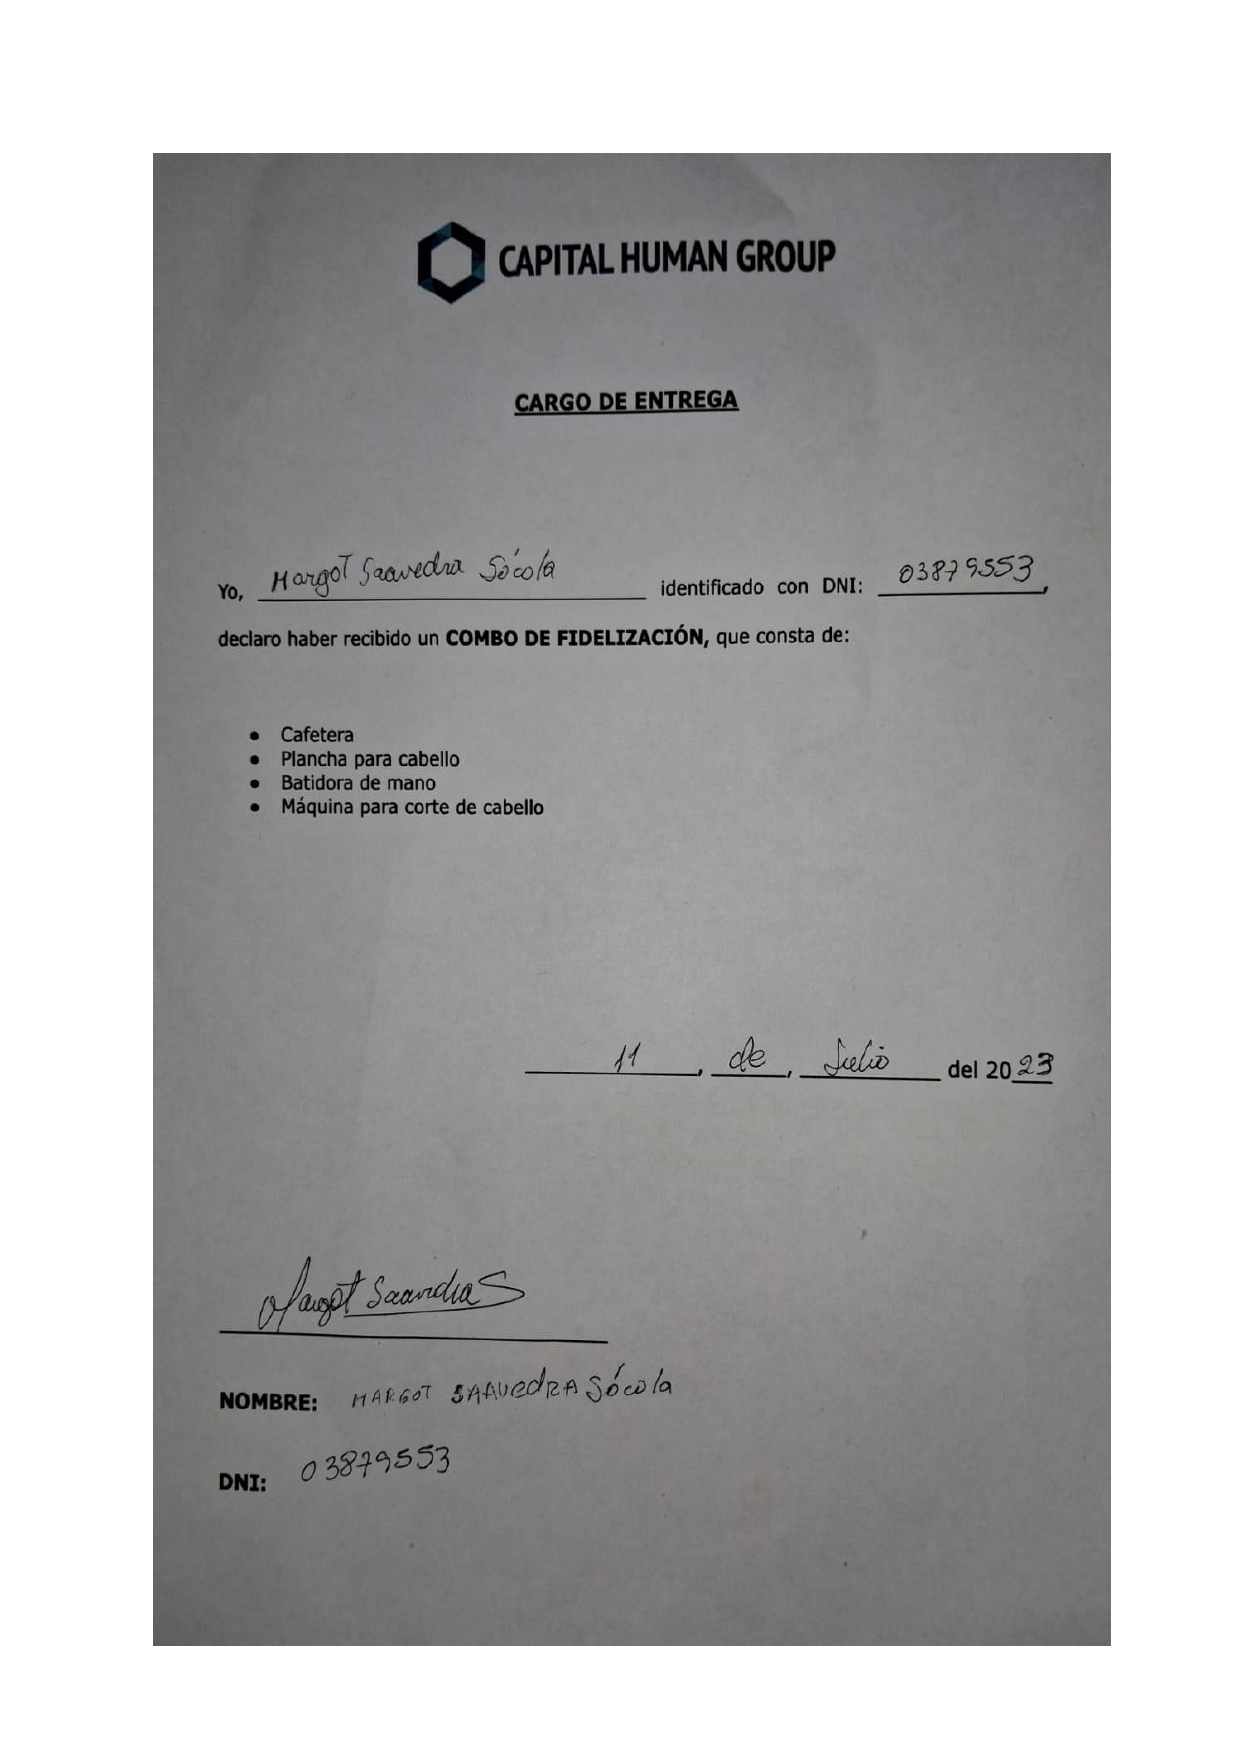 CAPITAL HUMAN GROUP
CARGO DE ENTREGA
Yo, Margot Saavedra Sócola identificado con DNI: 03879553,
declaro haber recibido un COMBO DE FIDELIZACIÓN, que consta de:
• Cafetera
• Plancha para cabello
• Batidora de mano
• Máquina para corte de cabello
11, de, Julio del 2023
Margot Saavedra S
NOMBRE: MARGOT SAAVedRA Sócola
DNI: 03879553